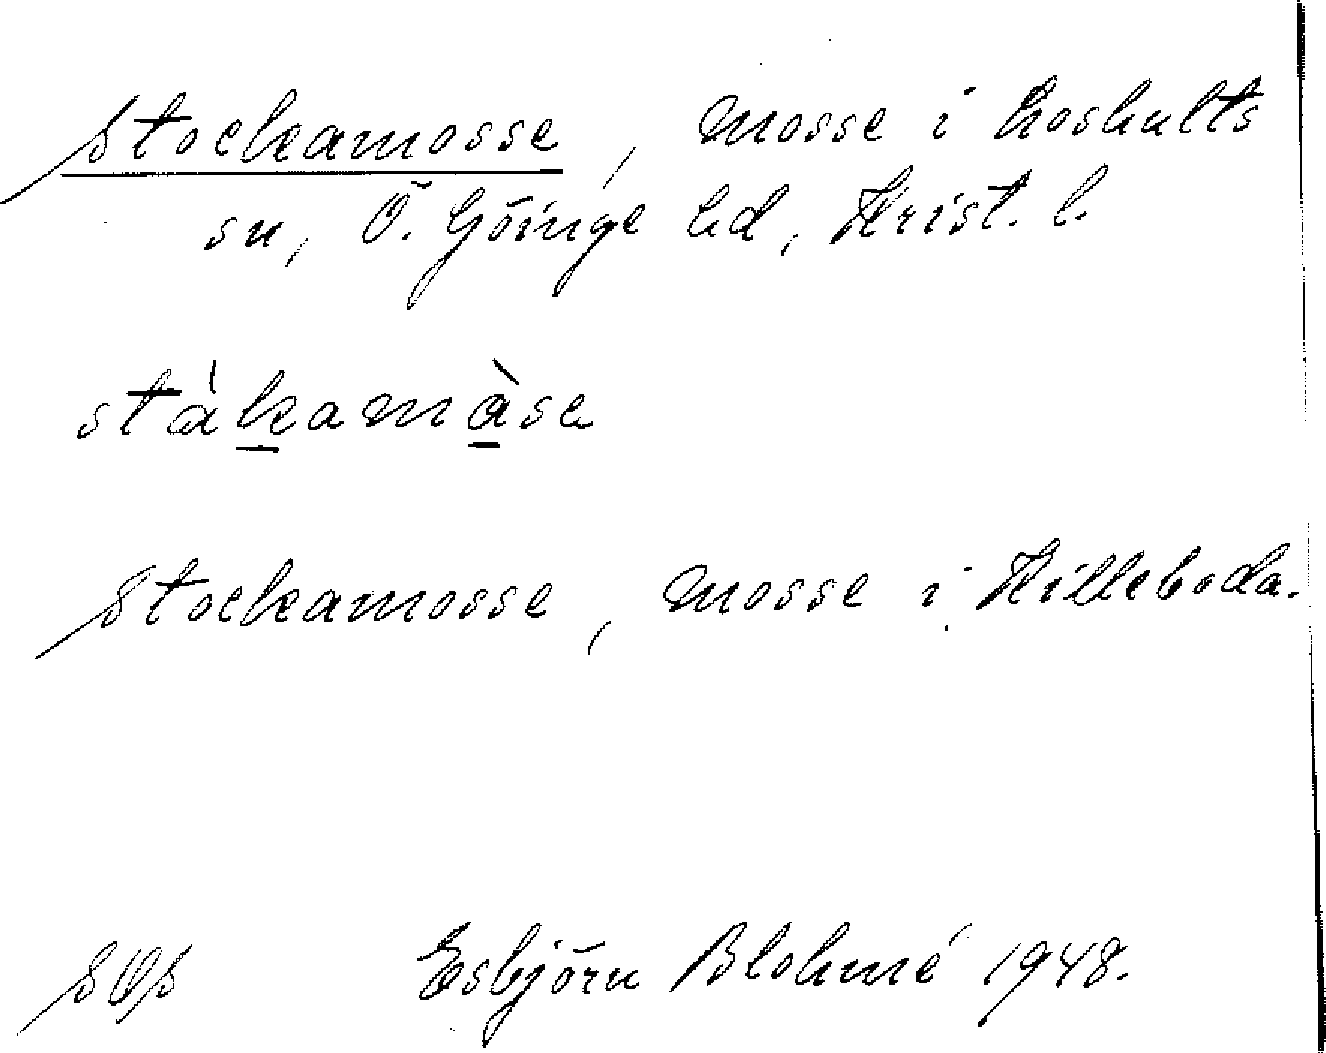 Stockamosse, mosse i Loshults
sn, Ö. Göinge hd, Krist. l.
stàkamàse
Stockamosse, mosse i Killeboda.
SOS Esbjörn Blohmé 1948.